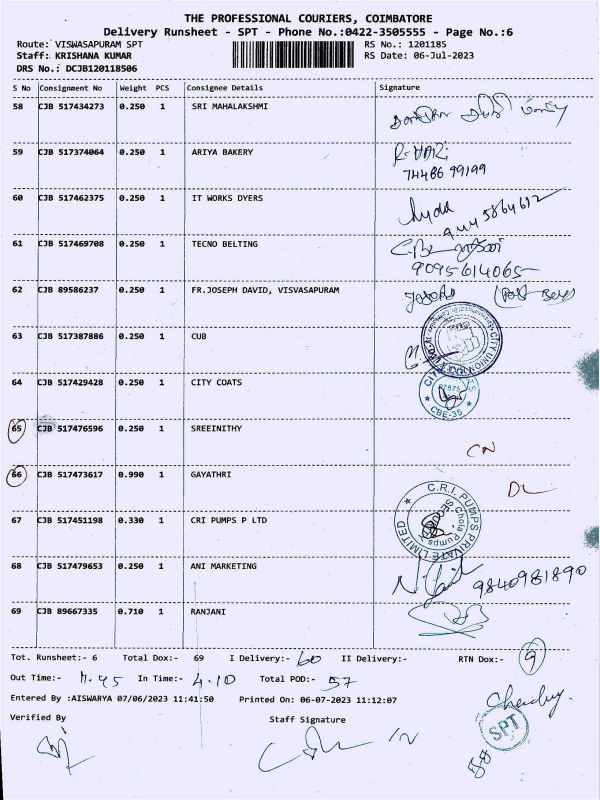 THE PROFESSIONAL COURIERS, COIMBATORE
Delivery Runsheet - SPT - Phone No.:0422-3505555 - Page No.:6
Route: VISWASAPURAM SPT RS No.: 1201185
Staff: KRISHANA KUMAR RS Date: 06-Jul-2023
DRS No.: DCJB120118506
S No Consignment No Weight PCS Consignee Details Signature
58 CJB 517434273 0.250 1 SRI MAHALAKSHMI
59 CJB 517374064 0.250 1 ARIYA BAKERY R-HARI
74486 99199
60 CJB 517462375 0.250 1 IT WORKS DYERS
61 CJB 517469708 0.250 1 TECNO BELTING
9095614065
62 CJB 89586237 0.250 1 FR.JOSEPH DAVID, VISVASAPURAM
63 CJB 517387886 0.250 1 CUB
CITY UNION
64 CJB 517429428 0.250 1 CITY COATS
CBE-35
65 CJB 517476596 0.250 1 SREEINITHY
CN
66 CJB 517473617 0.990 1 GAYATHRI
DL
67 CJB 517451198 0.330 1 CRI PUMPS P LTD
C.R.I. PUMPS PRIVATE LIMITED
Chola Pumps
68 CJB 517479653 0.250 1 ANI MARKETING
9840981890
69 CJB 89667335 0.710 1 RANJANI
Tot. Runsheet:- 6 Total Dox:- 69 I Delivery:- 60 II Delivery:- RTN Dox:- 9
Out Time:- 11.45 In Time:- 4.10 Total POD:- 57
Entered By :AISWARYA 07/06/2023 11:41:50 Printed On: 06-07-2023 11:12:07
Verified By Staff Signature
SPT